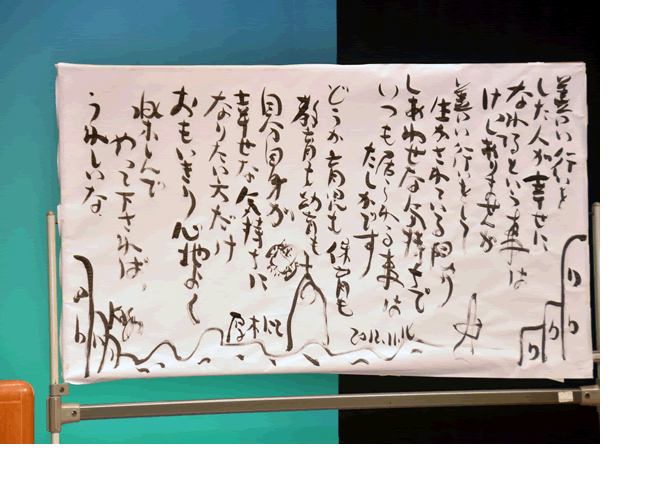 善い行いを
した人が幸せに
なれるという事は
けっしてありませんが
善い行いをして
生かされている間より
しあわせな気持ちで
いつも居られる事は
たしかです
どうか育児も保育も
教育も幼育も
自分自身が
幸せな気持ちに
なりたい方だけ
おもいきり心地よく
楽しんで
やって下されば、
うれしいな。
厚木にて
2012.11.16